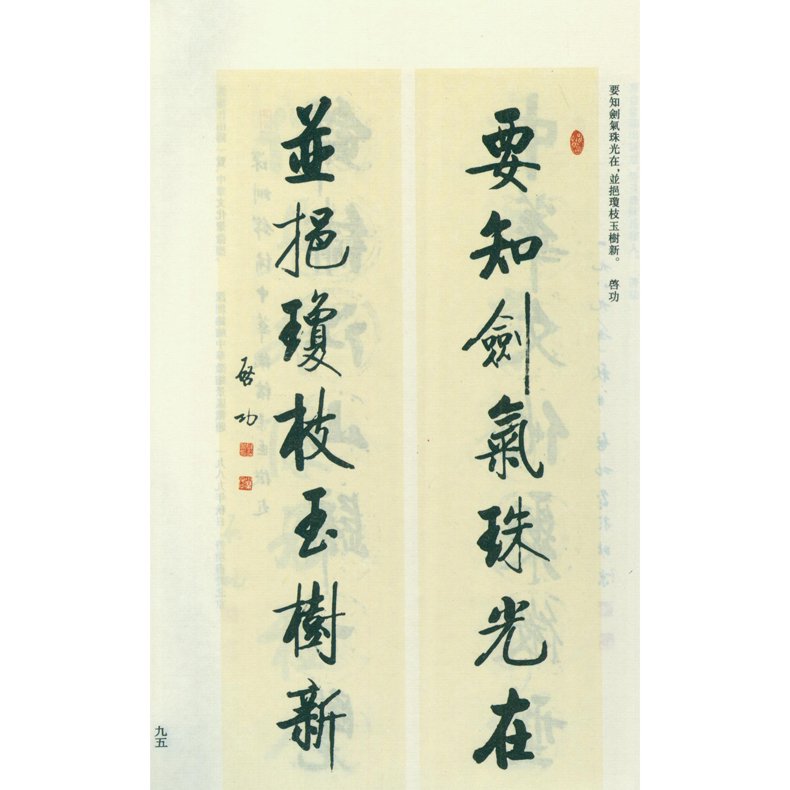 要知劍氣珠光在，並挹瓊枝玉樹新。 啓功
要知劍氣珠光在
並挹瓊枝玉樹新
啟功
九五